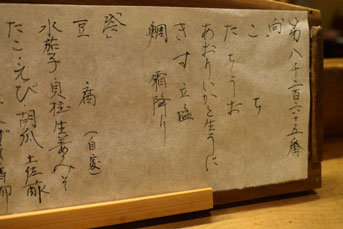 第八千二百六十五番
向
こち
たちうお
あおりいかと生うに
きす立塩
鯛 霜降り
豆腐（自家）
水茄子貝柱生姜みそ
たこえび胡瓜土佐酢